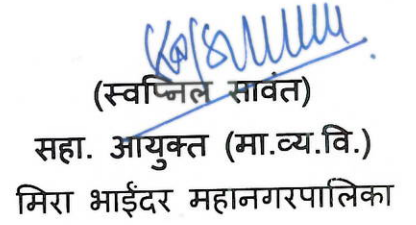 (स्वप्निल सावंत)
सहा. आयुक्त (मा.व्य.वि.)
मिरा भाईंदर महानगरपालिका